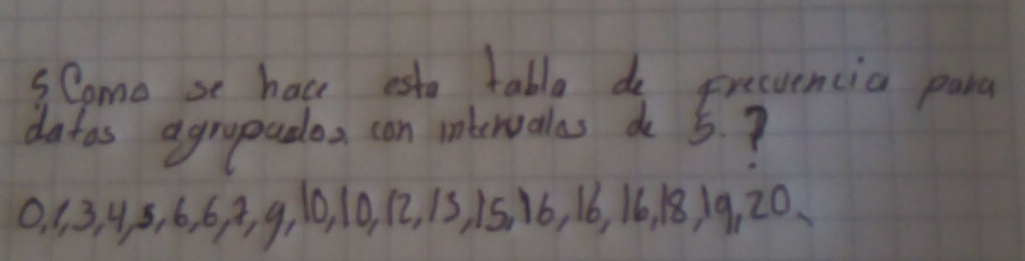 ¿Como se hace esta tabla de frecuencia para
datos agrupados con intervalos de 5.?
0,1,3,4,5,6,6,7,9,10,10,12,13,15,16,16,16,18,19,20.